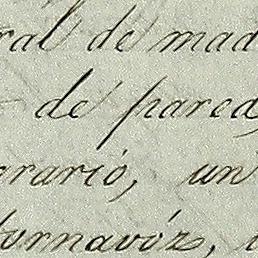 ral de mad
de pared,
rario, un
tornavóz,